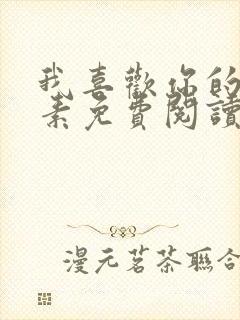 我喜歡你的
素免費閱讀
漫元茗茶聯合